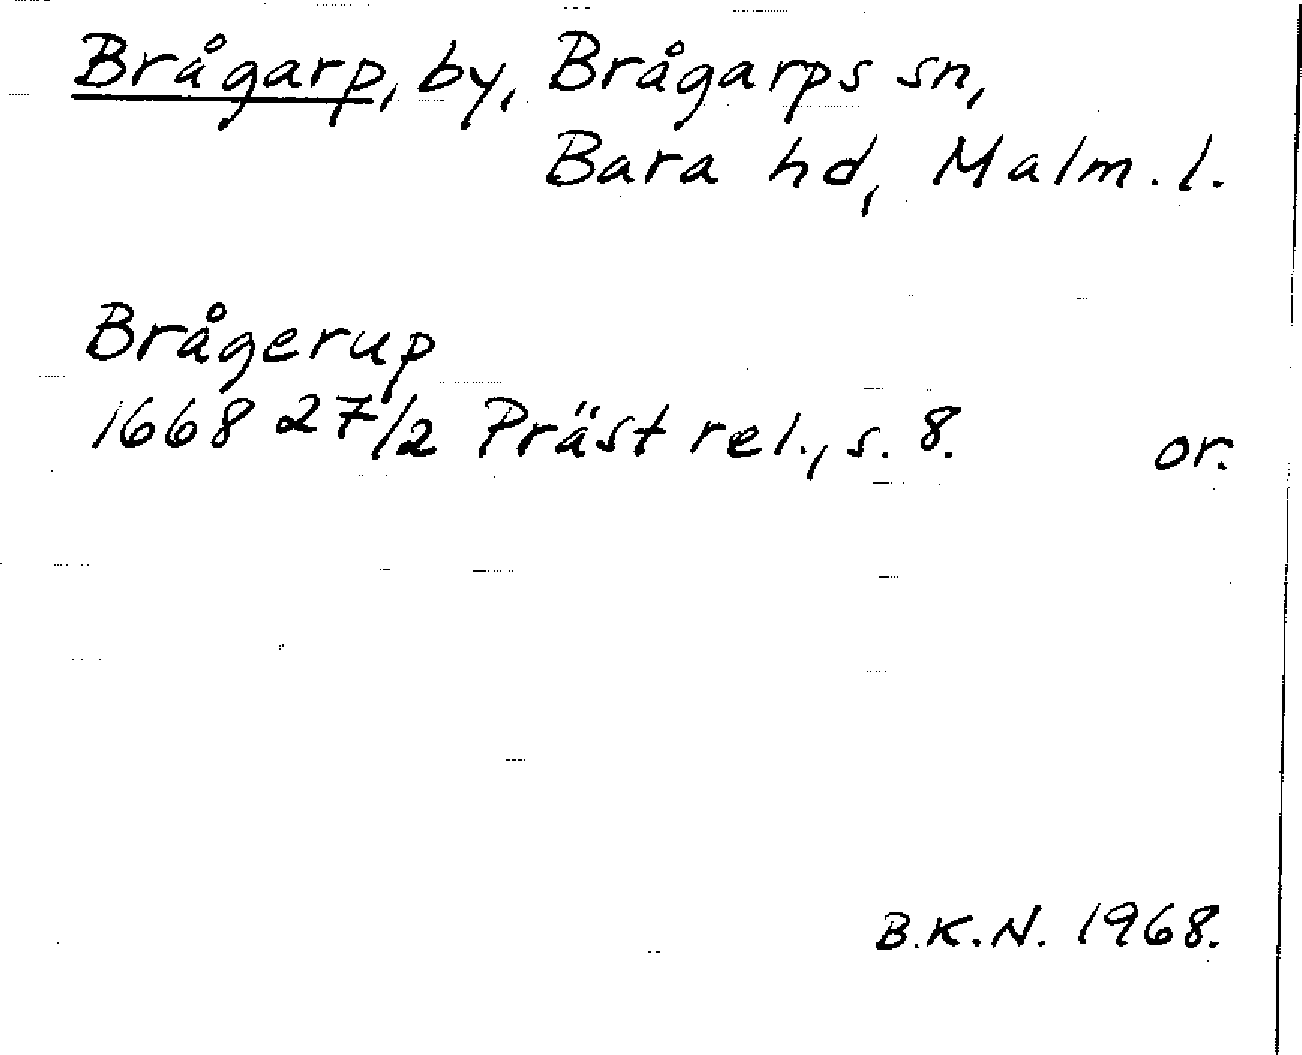 Brågarp, by, Brågarps sn,
Bara hd, Malm. l.
Brågerup
1668 27/2 Präst rel., s. 8. or.
B.K.N. 1968.